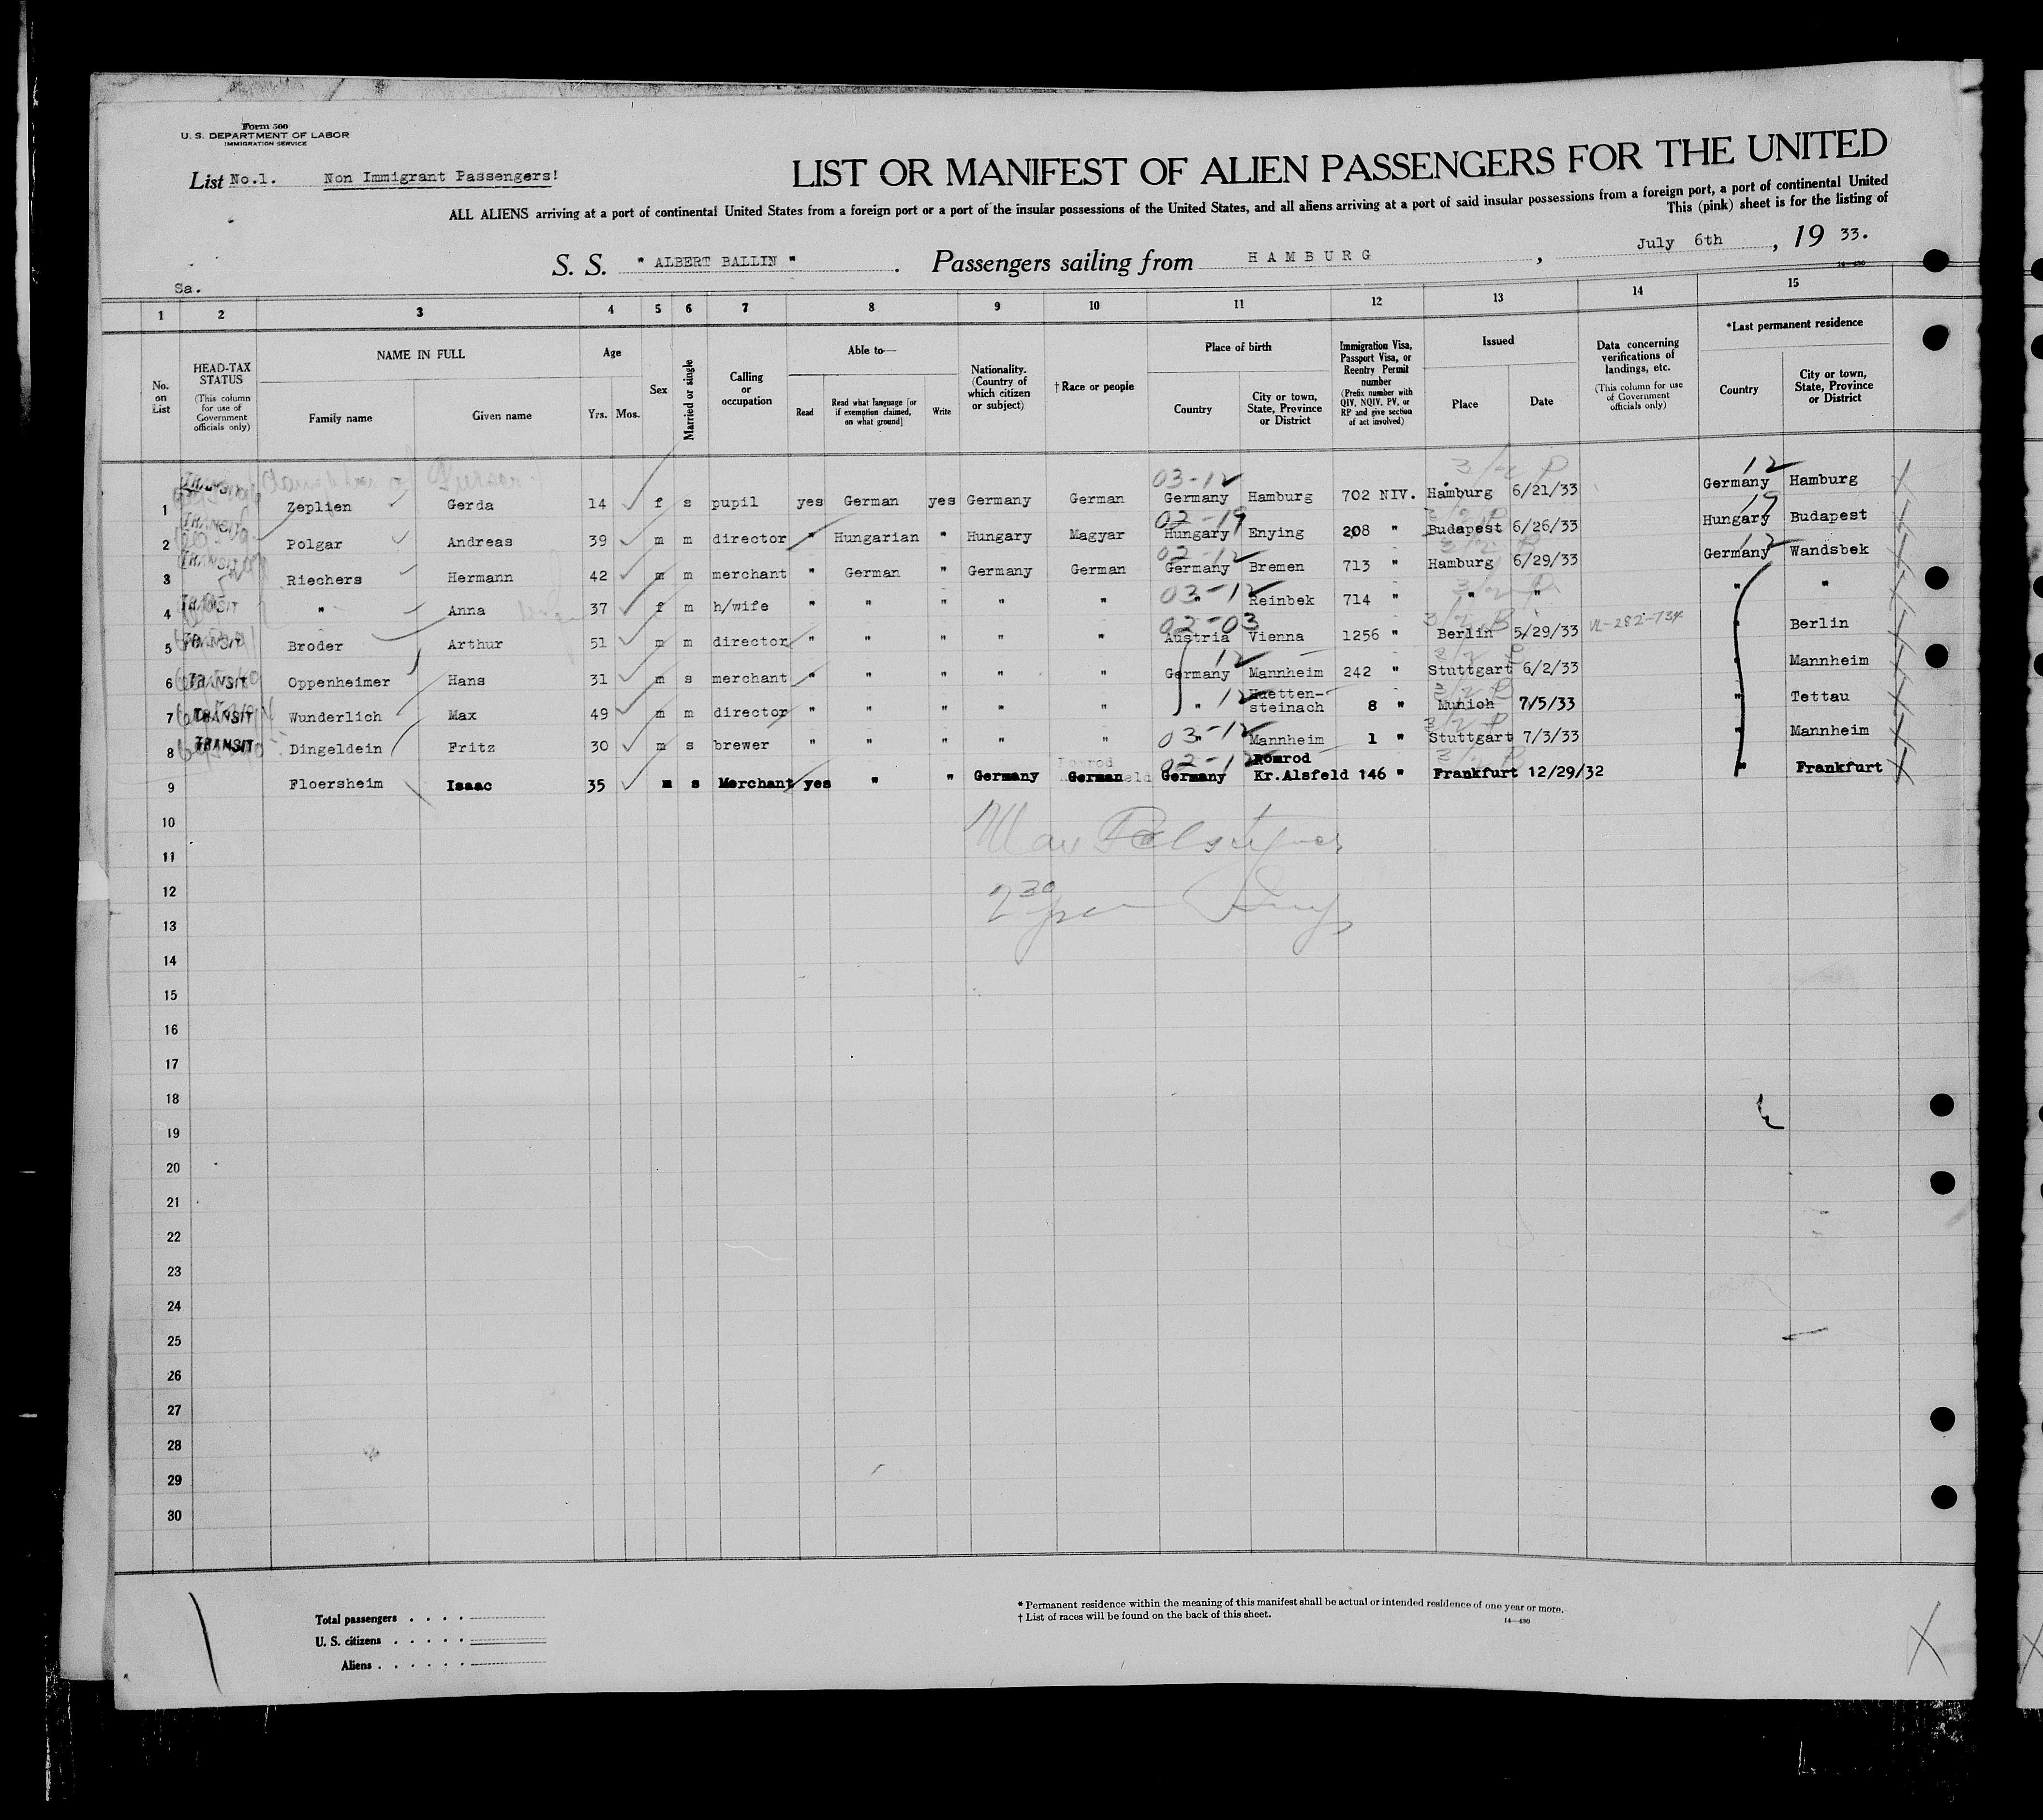 Form 500
U. S. DEPARTMENT OF LABOR
IMMIGRATION SERVICE
List No.1. Non Immigrant Passengers!
LIST OR MANIFEST OF ALIEN PASSENGERS FOR THE UNITED
ALL ALIENS arriving at a port of continental United States from a foreign port or a port of the insular possessions of the United States, and all aliens arriving at a port of said insular possessions from a foreign port, a port of continental United
This (pink) sheet is for the listing of
S. S. " ALBERT BALLIN " . Passengers sailing from HAMBURG , July 6th , 19 33.
Sa.
14—430
1 2 3 4 5 6 7 8 9 10 11 12 13 14 15
No. on List
HEAD-TAX STATUS (This column for use of Government officials only)
NAME IN FULL
Family name
Given name
Age
Yrs. Mos.
Sex
Married or single
Calling or occupation
Able to—
Read
Read what language [or if exemption claimed, on what ground]
Write
Nationality. (Country of which citizen or subject)
†Race or people
Place of birth
Country
City or town, State, Province or District
Immigration Visa, Passport Visa, or Reentry Permit number (Prefix number with QIV, NQIV, PV, or RP and give section of act involved)
Issued
Place
Date
Data concerning verifications of landings, etc. (This column for use of Government officials only)
*Last permanent residence
Country
City or town, State, Province or District
03-12 3/2 P 12
1 TRANSIT Zeplien Gerda 14 f s pupil yes German yes Germany German Germany Hamburg 702 NIV. Hamburg 6/21/33 Germany Hamburg
02-19 19
2 TRANSIT Polgar Andreas 39 m m director " Hungarian " Hungary Magyar Hungary Enying 208 " Budapest 6/26/33 Hungary Budapest
02-12 12
3 TRANSIT Riechers Hermann 42 m m merchant " German " Germany German Germany Bremen 713 " Hamburg 6/29/33 Germany Wandsbek
03-12
4 TRANSIT " Anna 37 f m h/wife " " " " " " Reinbek 714 " " " " "
02-03
5 TRANSIT Broder Arthur 51 m m director " " " " " Austria Vienna 1256 " Berlin 5/29/33 VL-282-734 " Berlin
12
6 TRANSIT Oppenheimer Hans 31 m s merchant " " " " " Germany Mannheim 242 " Stuttgart 6/2/33 " Mannheim
12
7 TRANSIT Wunderlich Max 49 m m director " " " " " " Huetten-steinach 8 " Munich 7/5/33 " Tettau
03-12
8 TRANSIT Dingeldein Fritz 30 m s brewer " " " " " " Mannheim 1 " Stuttgart 7/3/33 " Mannheim
02-12
9 Floersheim Isaac 35 m s Merchant yes " " Germany German Germany Romrod Kr.Alsfeld 146 " Frankfurt 12/29/32 " Frankfurt
10
11
12
13
14
15
16
17
18
19
20
21
22
23
24
25
26
27
28
29
30
Total passengers . . . .
U. S. citizens . . . . .
Aliens . . . . . .
* Permanent residence within the meaning of this manifest shall be actual or intended residence of one year or more.
† List of races will be found on the back of this sheet.
14—430